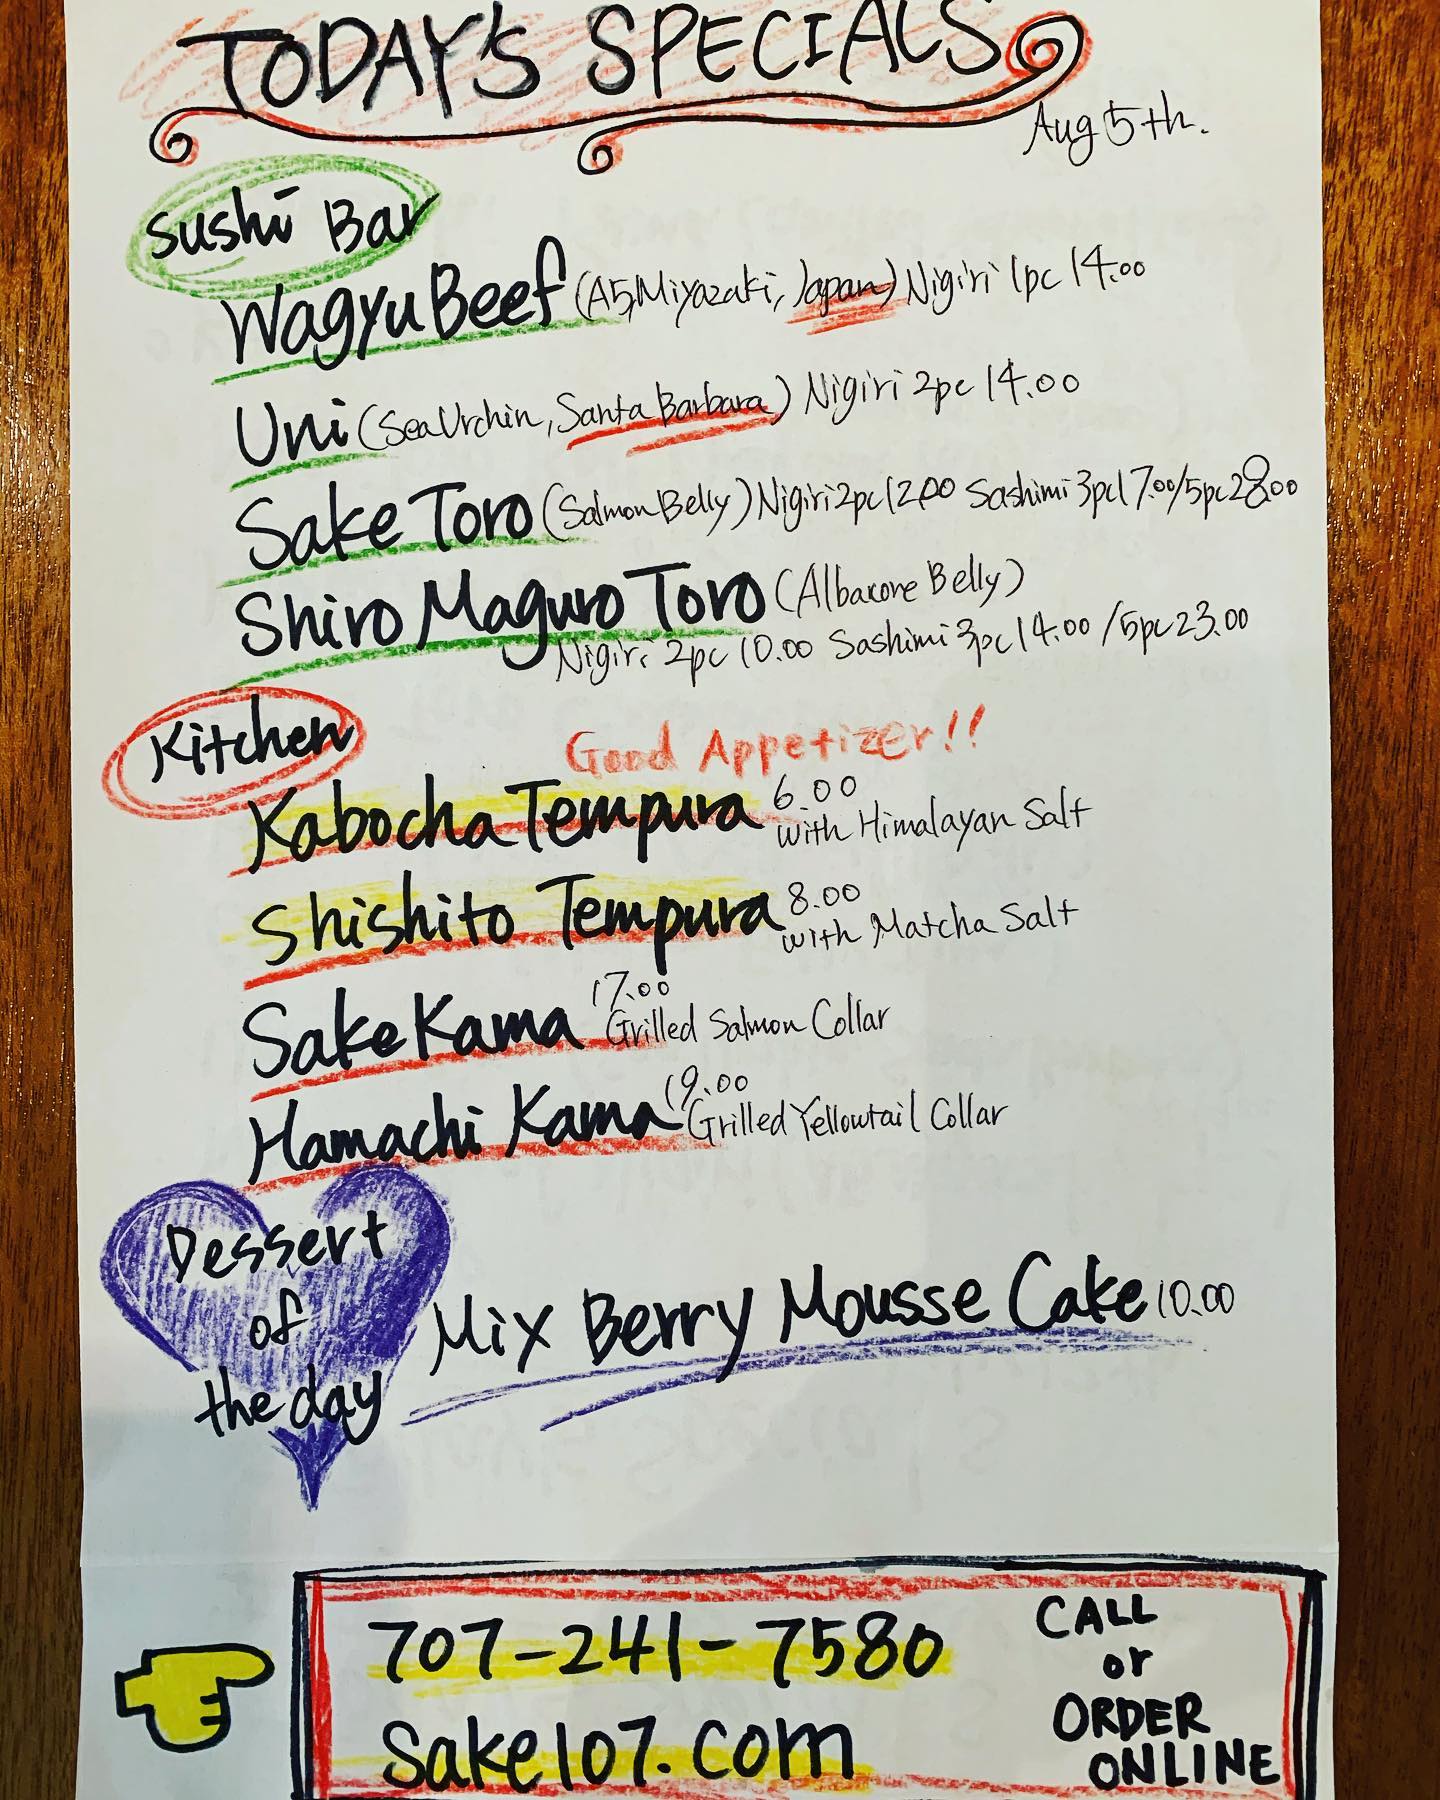 TODAY'S SPECIALS
Aug 5th.
Sushi Bar
Wagyu Beef (A5, Miyazaki, Japan) Nigiri 1pc 14.00
Uni (Sea Urchin, Santa Barbara) Nigiri 2pc 14.00
Sake Toro (Salmon Belly) Nigiri 2pc 12.00 Sashimi 3pc 17.00/5pc 28.00
Shiro Maguro Toro (Albacore Belly)
Nigiri 2pc 10.00 Sashimi 3pc 14.00/5pc 23.00
Kitchen
Good Appetizer!!
Kabocha Tempura 6.00
with Himalayan Salt
Shishito Tempura 8.00
with Matcha Salt
Sake Kama 17.00
Grilled Salmon Collar
Hamachi Kama 19.00
Grilled Yellowtail Collar
Dessert
of
the day
Mix Berry Mousse Cake 10.00
707-241-7580
Sake107.com
CALL
or
ORDER
ONLINE